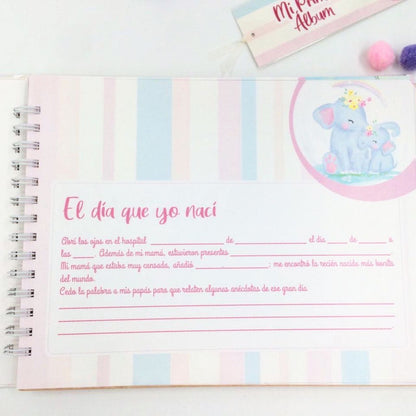 Mi Prim
Álbum
El día que yo nací
Abrí los ojos en el hospital ____________ de ____________ el día ____ de ______ a
las ____. Además de mi mamá, estuvieron presentes ____________________________.
Mi mamá que estaba muy cansada, añadió ______________; me encontró la recién nacida más bonita
del mundo.
Cedo la palabra a mis papás para que relaten algunas anécdotas de ese gran día.